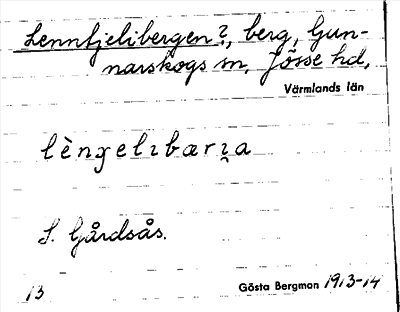 Lennfjelibergen?, berg, Gun-
narskogs sn, Jösse hd,
Värmlands län
lènɟelɩbærɩ̯a
S. Gårdsås.
13
Gösta Bergman 1913-14